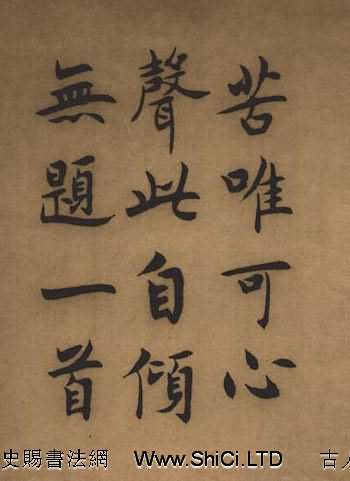 苦唯可心
聲此自傾
無題一首
史賜書法網 Www.ShiCi.LTD 古人